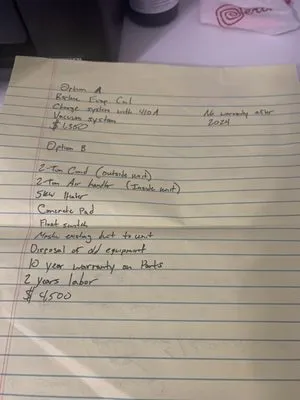 Perú
Option A
Replace Evap Coil
Charge system with 410A
No warranty after
Vacuum system
2024
$1,350
Option B
2-Ton Cond (outside unit)
2-Ton Air handler (Inside unit)
5kw Heater
Concrete Pad
Float switch
existing duct to unit
Disposal of old equipment
10 year warranty on Parts
2 years labor
$4,500